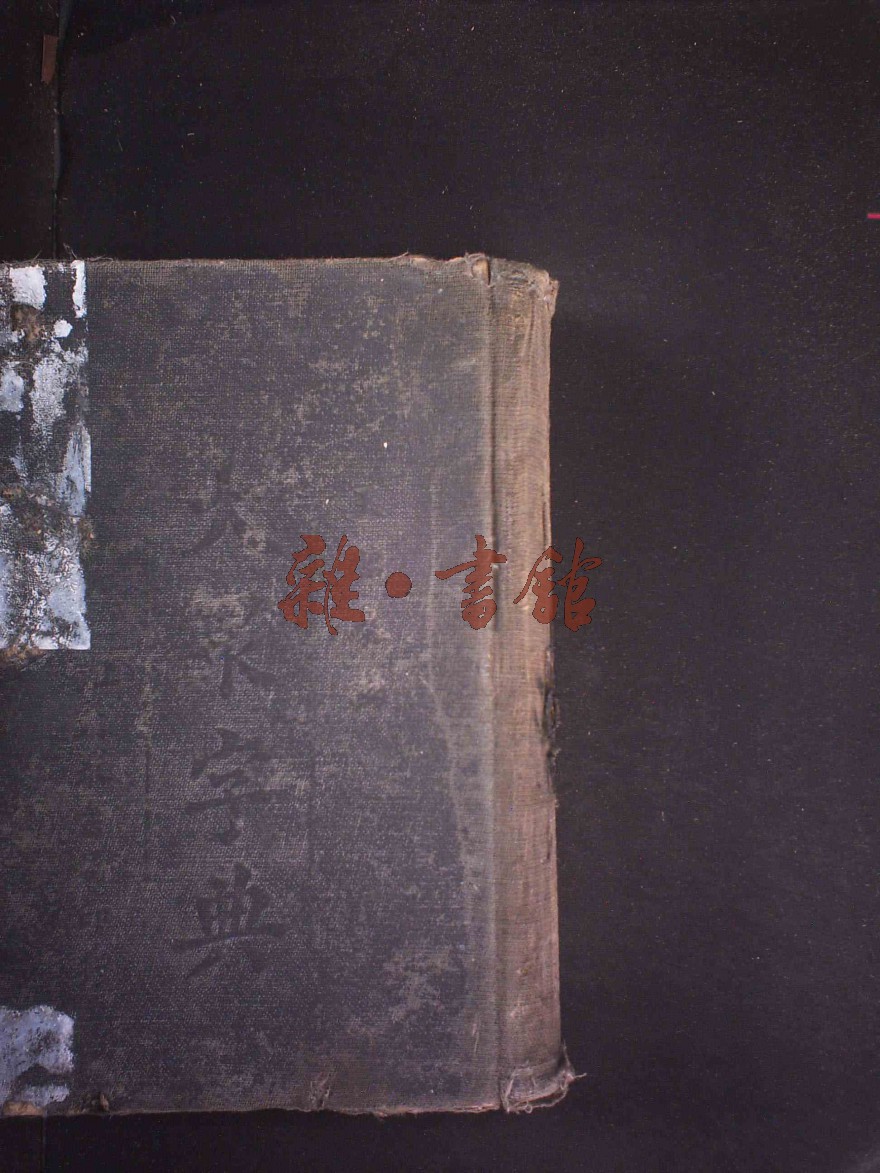 大眾字典
雜·書館